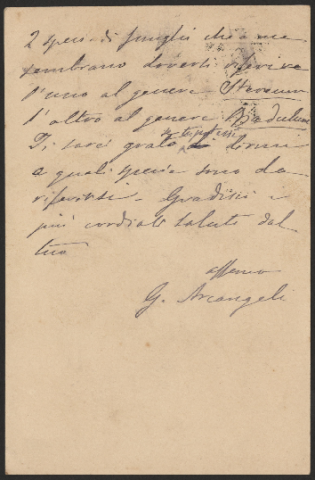 2 specie di funghi che a me
sembrano doversi riferire
l'uno al genere Stereum
l'altro al genere
Ti sarei grato se tu potessi dirmi
a quali specie sono da
riferirsi. Gradisci i
più cordiali saluti dal
tuo
affemo
G. Arcangeli